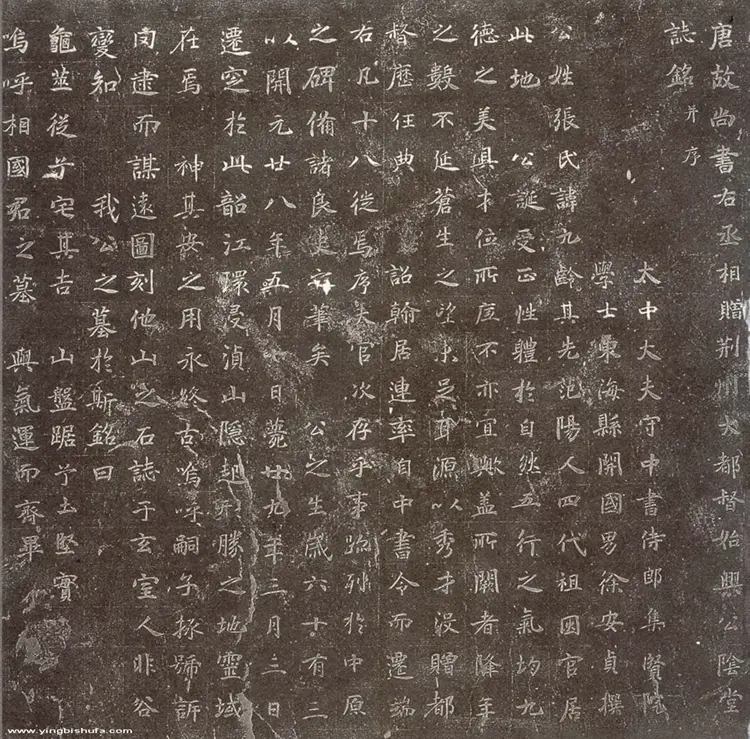 唐故尚書右丞相贈荊州大都督始興公陰堂
誌銘并序
太中大夫守中書侍郎集賢院
學士東海縣開國男徐安貞撰
公姓張氏諱九齡其先范陽人四代祖因官居
此地 公誕受正性體於自然五行之氣均九
德之美具才位所底不亦宜歟蓋所闕者降年
之數不延蒼生之望未足耳源以秀才沒贈都
督歷任典 詔翰居連率自中書令而遷端
右凡十八徙焉序夫官次存乎事跡列於中原
之碑備諸良史容筆矣 公之生歲六十有三
以開元廿八年五月七日薨廿九年三月三日
遷窆於此韶江環浸湞山隱起形勝之地靈域
在焉 神其安之用永終古嗚呼嗣子拯號訴
罔逮而謀遠圖刻他山之石誌于玄室人非谷
變知 我公之墓於斯銘曰
龜筮從兮宅其吉 山盤踞兮土堅實
嗚呼相國君之墓 與氣運而齊畢
www.yingbishufa.com